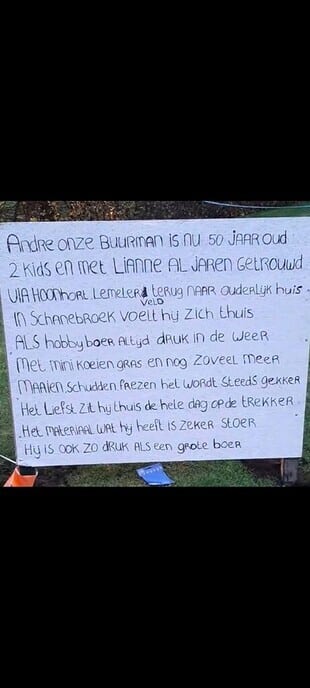 Andre onze Buurman is nu 50 jaar oud
2 kids en met Lianne al jaren getrouwd
via Hoonhorl Lemeler veld terug naar ouderlyk huis
In Schanebroek voelt hy zich thuis
Als hobbyboer altyd druk in de weer
Met mini koeien gras en nog zoveel meer
Maaien schudden frezen het wordt steeds gekker
Het liefst zit hy thuis de hele dag op de trekker
Het materiaal wat hy heeft is zeker stoer
Hy is ook zo druk als een grote boer